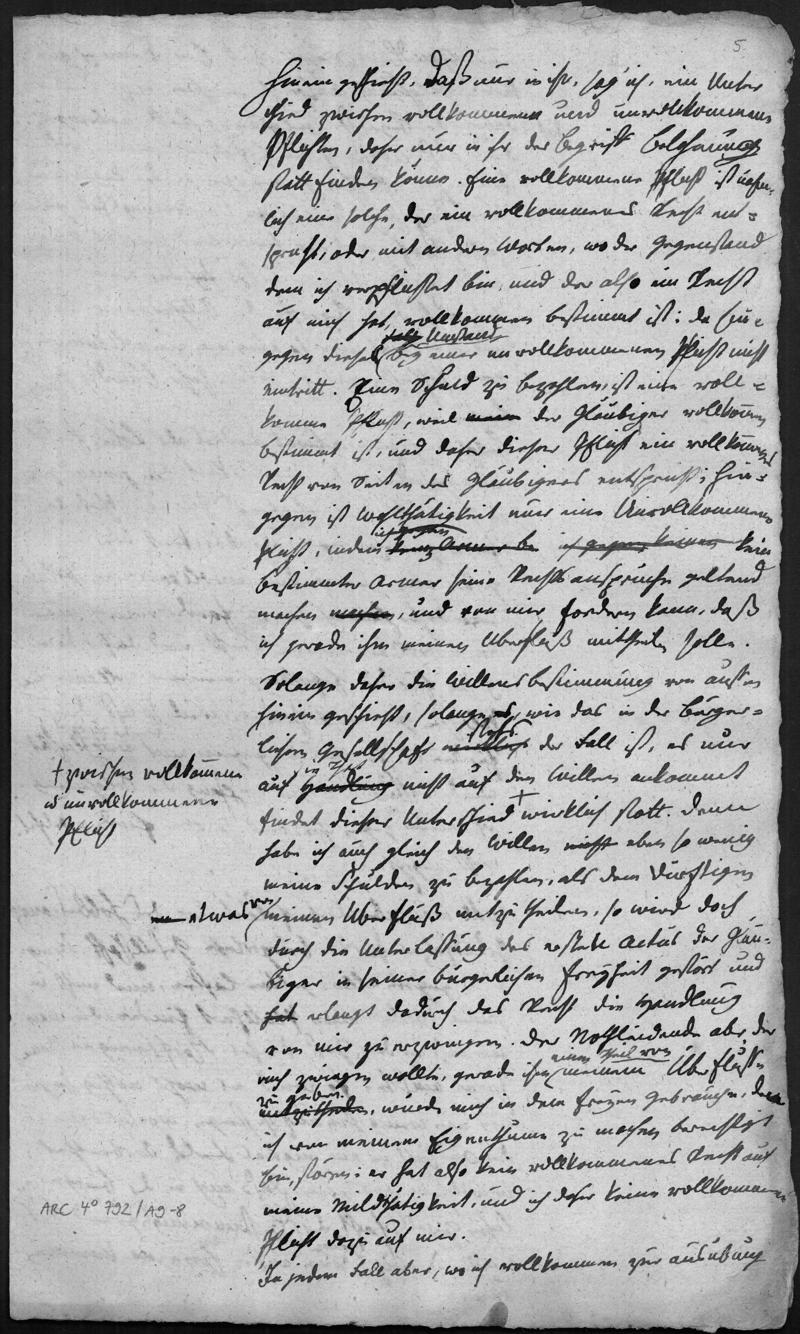 5.
hinein geschieht. Daß nur in ihr, sag' ich, ein Unter
schied zwischen vollkommenen und unvollkommenen
Pflichten, daher nur in ihr der Begriff Belohnung
statt finden könne. Eine vollkommene Pflicht ist nehm-
lich eine solche, der ein vollkommenes Recht ent-
spricht, oder mit andern Worten, wo der Gegenstand
dem ich verpflichtet bin, und der also ein Recht
auf mich hat, vollkommen bestimmt ist: da hin-
Umstand
gegen dieser bey einer unvollkommenen Pflicht nicht
eintritt. Eine Schuld zu bezahlen, ist eine voll-
komme Pflicht, weil mein der Gläubiger vollkommen
bestimmt ist, und daher dieser Pflicht ein vollkommnes
Recht von Seiten des Gläubigers entspricht; hin-
gegen ist Wohlthätigkeit nur eine Unvollkommene
Pflicht, indem kein Armer ich gegen keinen kein
bestimmter Armer seine Rechtsansprüche geltend
machen machen, und von mir fordern kann, daß
ich gerade ihm meinen Überfluß mittheilen solle.
Solange daher die Willensbestimmung von aussen
hinein geschieht, solange es, wie das in der bürger-
stets
lichen Gesellschaft wirklich der Fall ist, es nur
auf Handlung nicht auf den Willen ankommt
† zwischen vollkommener
u unvollkommener
Pflicht
findet dieser Unterschied † wirklich statt. Denn
habe ich auch gleich den Willen nicht eben so wenig
meine Schulden zu bezahlen, als dem Dürftigen
etwas von
meinem Überfluß mitzutheilen, so wird doch
durch die Unterlassung des erstern Actus der Gläu-
biger in seiner bürgerlichen Freyheit gestört und
hat erlangt dadurch das Recht die Handlung
von mir zu erzwingen. Der Nothleidende aber, der
einen Theil von
mich zwingen wollte, gerade ihm meinem Überfluße
zu geben
mitzutheilen, würde mich in dem freyen Gebrauche, den
ich von meinem Eigenthume zu machen berechtigt
bin, stören: er hat also kein vollkommenes Recht auf
meine Mildthätigkeit, und ich daher keine vollkommene
Pflicht dazu auf mir.
In jedem Fall aber, wo ich vollkommen zur Ausübung
ARC 4° 792 / A9-8